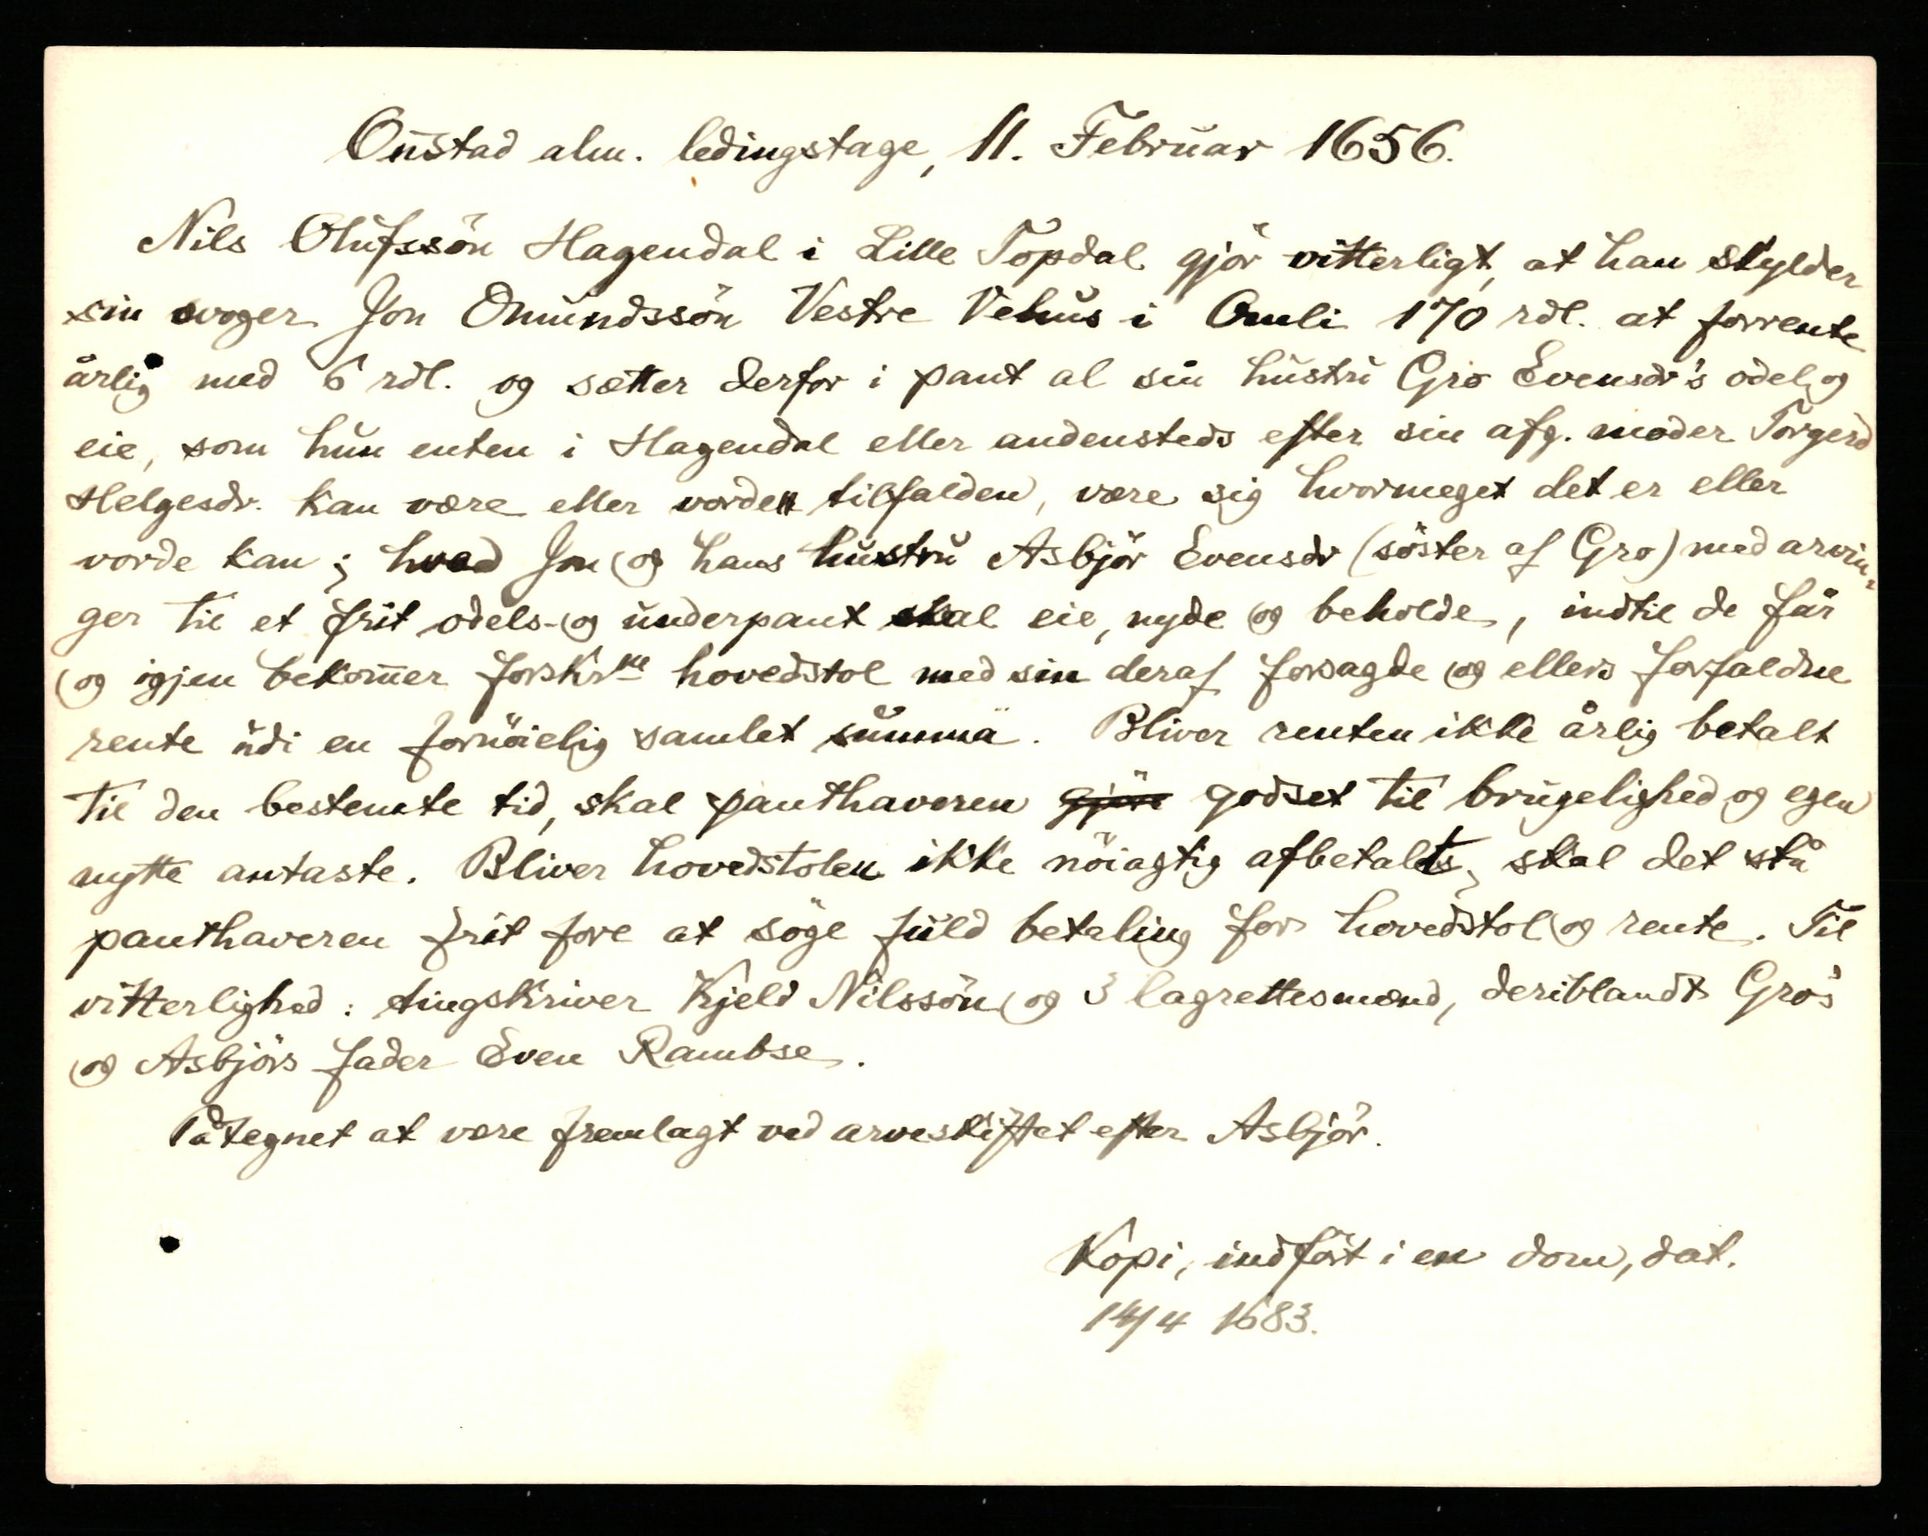 Onstad alm. ledingstage, 11. Februar 1656.
Nils Olufssön Hagendal i Lille Topdal gjör vitterligt, at han skylder
sin svoger Jon Omundssön Vestre Vehus i Omli 170 rdl. at forrente
årlig med 6 rdl. og sætter derfor i pant al sin hustru Gro Evensdr's odel og
eie, som hun enten i Hagendal eller andensteds efter sin afg. moder Torgerd
Helgesdr. kan være eller vorden tilfalden, være sig hvormeget det er eller
vorde kan; hvad Jon og hans hustru Asbjör Evensdr (söster af Gro) med arvin-
ger til et frit odels- og underpant skal eie, nyde og beholde, indtil de får
og igjen bekommer forskrne hovedstol med sin deraf forsagde og ellers forfaldne
rente udi en fornöielig samlet summa. Bliver renten ikke årlig betalt
til den bestemte tid, skal panthaveren gjöre godset til brugelighed og egen
nytte antaste. Bliver hovedstolen ikke nöiagtig afbetalt, skal det stå
panthaveren frit fore at söge fuld betaling for hovedstol og rente. Til
vitterlighed: tingskriver Kjeld Nilssön og 3 lagrettesmænd, deriblandt Gro's
og Asbjörs fader Even Rambse.
Påtegnet at være fremlagt ved arveskiftet efter Asbjör.
Kopi, indfört i en dom, dat.
14/4 1683.